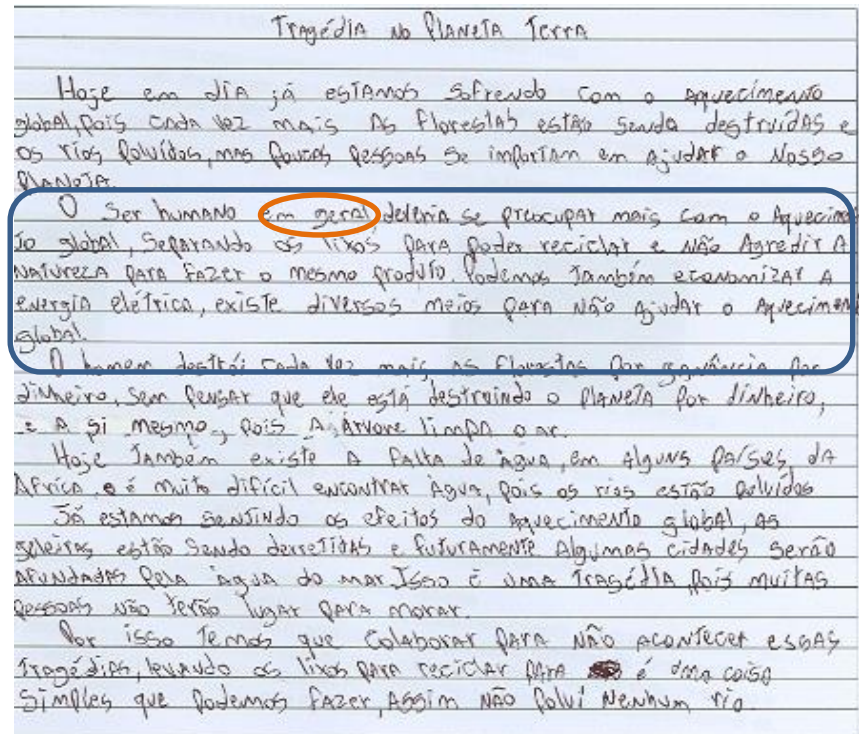 Tragédia no Planeta Terra
Hoje em dia já estamos sofrendo com o aquecimento
global, pois cada vez mais as florestas estão senda destruídas e
os rios poluídos, mas poucas pessoas se importam em ajudar o nosso
planeta.
O ser humano em geral, deveria se preocupar mais com o aquecimen
to global, separando os lixos para poder reciclar e não agredir a
natureza para fazer o mesmo produto. Podemos também economizar a
energia elétrica, existe diversos meios para não ajudar o aquecimen
global.
O homem destrói cada vez mais as florestas por ganância por
dinheiro, sem pensar que ele está destruindo o planeta por dinheiro,
e a si mesmo, pois a árvore limpa o ar.
Hoje também existe a falta de água, em alguns países da
África, e é muito difícil encontrar água, pois os rios estão poluídos
Já estamos sentindo os efeitos do aquecimento global, as
geleiras estão sendo derretidas e futuramente algumas cidades serão
afundadas pela água do mar. Isso é uma tragédia, pois muitas
pessoas não terão lugar para morar.
Por isso temos que colaborar para não acontecer essas
tragédias, levando os lixos para reciclar para é uma coisa
simples que podemos fazer, assim não polui nenhum rio.